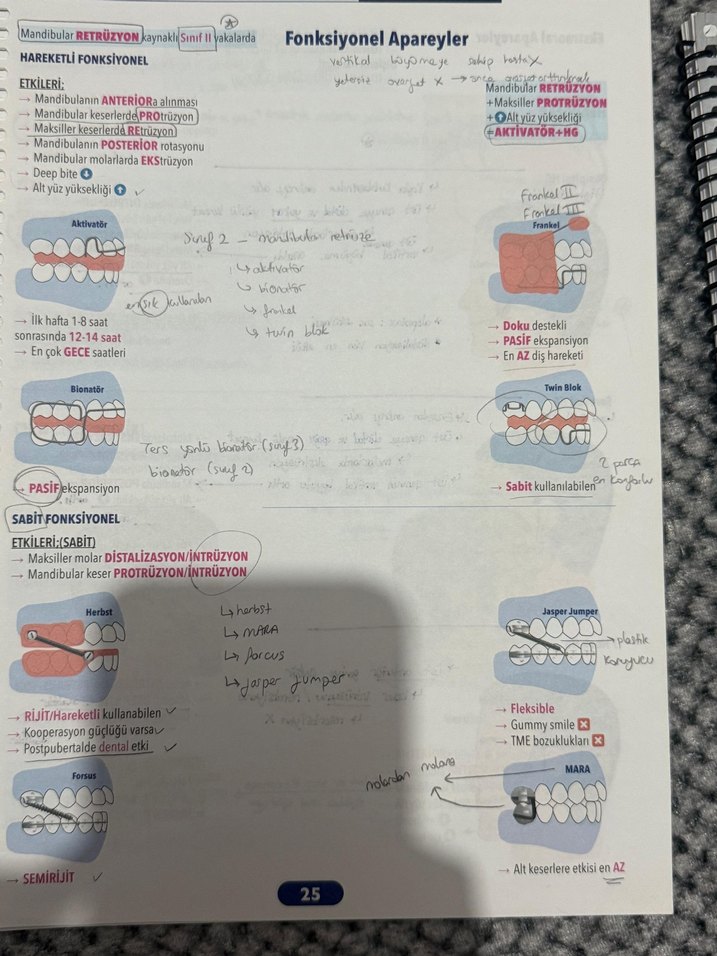 Mandibular RETRÜZYON kaynaklı Sınıf II vakalarda
Fonksiyonel Apareyler
HAREKETLİ FONKSİYONEL
vertikal büyümeye sahip hasta X
yetersiz overjet X → önce
ETKİLERİ:
→ Mandibulanın ANTERIORa alınması
→ Mandibular keserlerde PROtrüzyon
→ Maksiller keserlerde REtrüzyon
→ Mandibulanın POSTERIOR rotasyonu
→ Mandibular molarlarda EKStrüzyon
→ Deep bite ↓
→ Alt yüz yüksekliği ↑ ✓
Mandibular RETRÜZYON
+Maksiller PROTRÜZYON
+↑Alt yüz yüksekliği
=AKTİVATÖR+HG
Aktivatör
en sık kullanılan
→ İlk hafta 1-8 saat
sonrasında 12-14 saat
→ En çok GECE saatleri
Sınıf 2 - mandibular retrüze
↳ aktivatör
↳ bionatör
↳ frankel
↳ twin blok
Frankel II
Frankel III
Frankel
→ Doku destekli
→ PASİF ekspansiyon
→ En AZ diş hareketi
Bionatör
Ters yönlü bionatör (sınıf 3)
bionatör (sınıf 2)
→ PASİF ekspansiyon
Twin Blok
→ Sabit kullanılabilen
2 parça
en konforlu
SABİT FONKSİYONEL
ETKİLERİ:(SABİT)
→ Maksiller molar DİSTALİZASYON/İNTRÜZYON
→ Mandibular keser PROTRÜZYON/İNTRÜZYON
Herbst
↳ herbst
↳ MARA
↳ forcus
↳ Jasper Jumper
→ RİJİT/Hareketli kullanabilen ✓
→ Kooperasyon güçlüğü varsa ✓
→ Postpubertalde dental etki ✓
Jasper Jumper
→ plastik
koruyucu
→ Fleksible
→ Gummy smile X
→ TME bozuklukları X
Forsus
→ SEMİRİJİT ✓
MARA
molardan molara
→ Alt keserlere etkisi en AZ
25